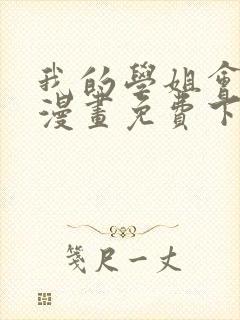 我的學姐會
漫畫免費下
箋尺一丈